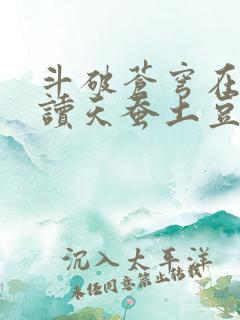 斗破苍穹在
讀天蚕土豆
沉入太平洋
未经同意禁止转载